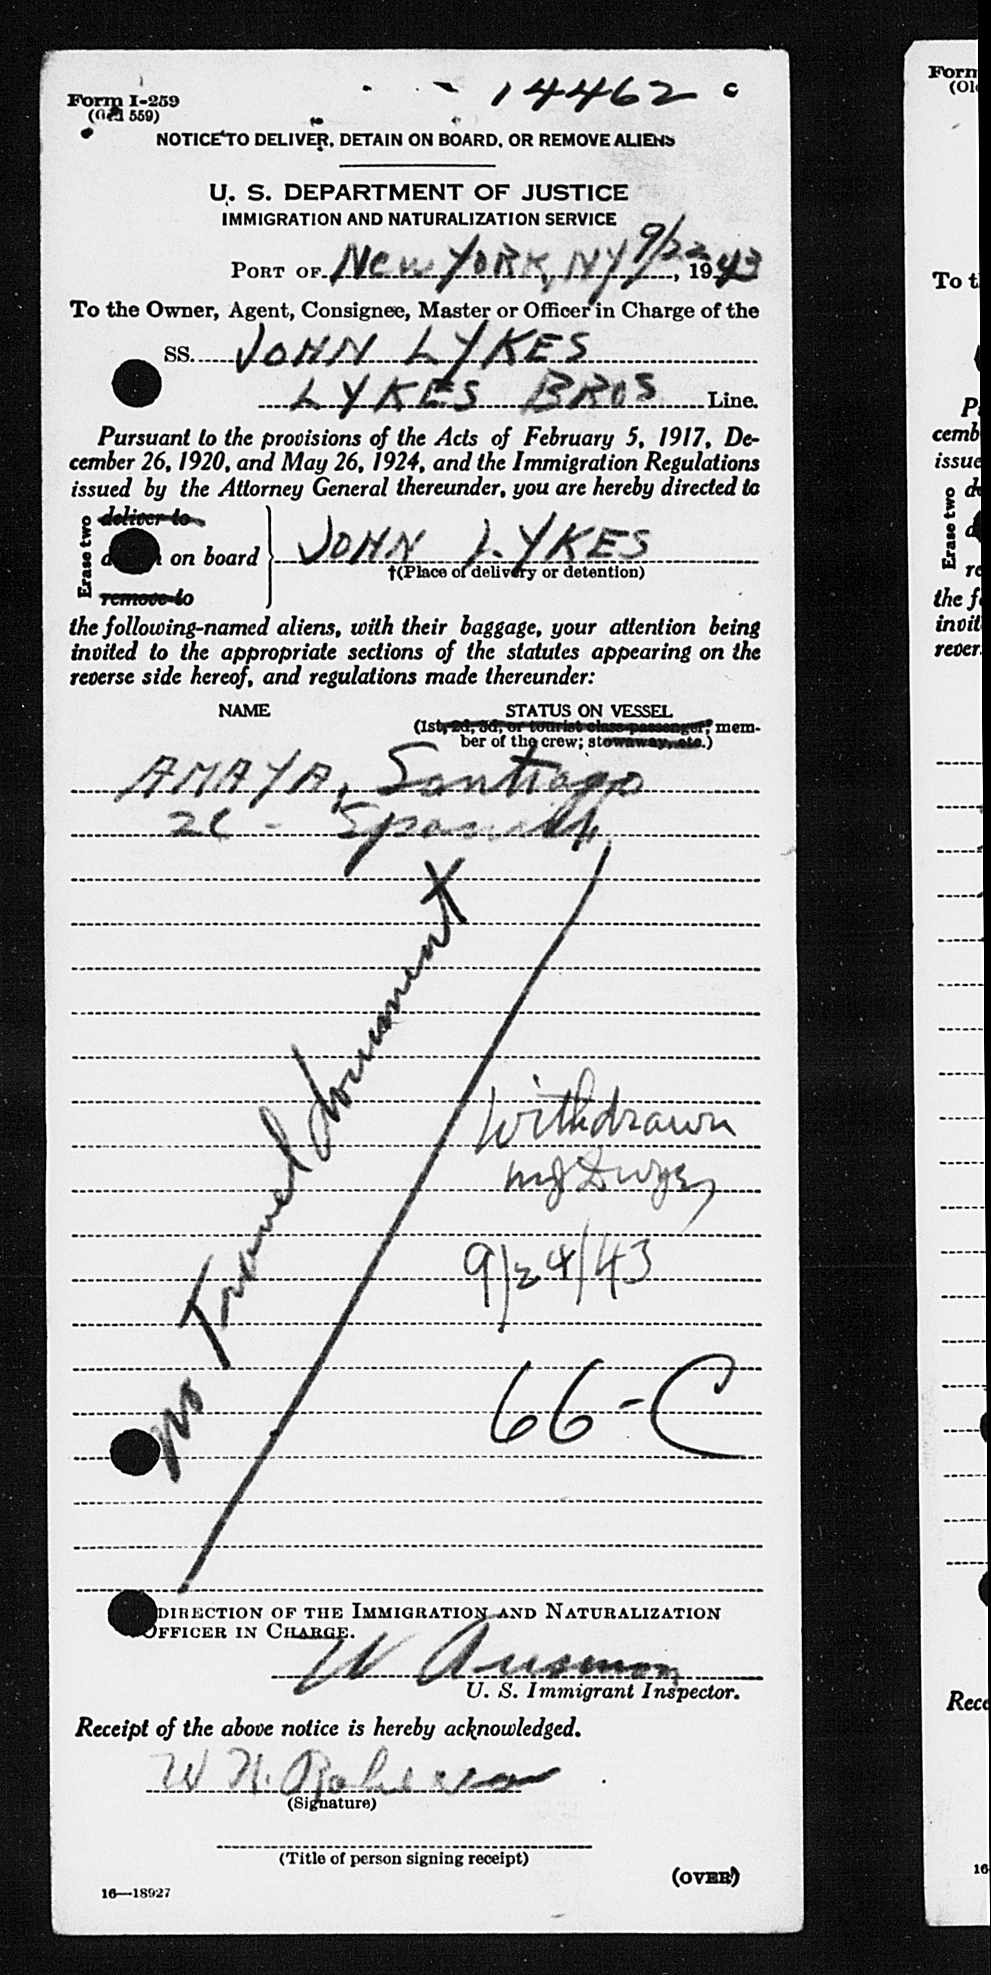 14462 c
Form I-259
(Old 559)
NOTICE TO DELIVER, DETAIN ON BOARD, OR REMOVE ALIENS
U. S. DEPARTMENT OF JUSTICE
IMMIGRATION AND NATURALIZATION SERVICE
PORT OF New York, NY 9/22, 1943
To the Owner, Agent, Consignee, Master or Officer in Charge of the
SS. JOHN LYKES
LYKES BROS Line.
Pursuant to the provisions of the Acts of February 5, 1917, De-
cember 26, 1920, and May 26, 1924, and the Immigration Regulations
issued by the Attorney General thereunder, you are hereby directed to
Erase two
deliver to
on board
remove to
JOHN LYKES
†(Place of delivery or detention)
the following-named aliens, with their baggage, your attention being
invited to the appropriate sections of the statutes appearing on the
reverse side hereof, and regulations made thereunder:
NAME STATUS ON VESSEL
(1st, 2d, 3d, or tourist class passenger; mem-
ber of the crew; stowaway, etc.)
AMAYA, Santiago
2C - Spanish
no Travel document
Withdrawn
9/24/43
66-C
DIRECTION OF THE IMMIGRATION AND NATURALIZATION
OFFICER IN CHARGE.
W
U. S. Immigrant Inspector.
Receipt of the above notice is hereby acknowledged.
W
(Signature)
(Title of person signing receipt)
(OVER)
16—18927
Form
To t
cemb
issue
Erase two
the f
invit
rever
Rece
16